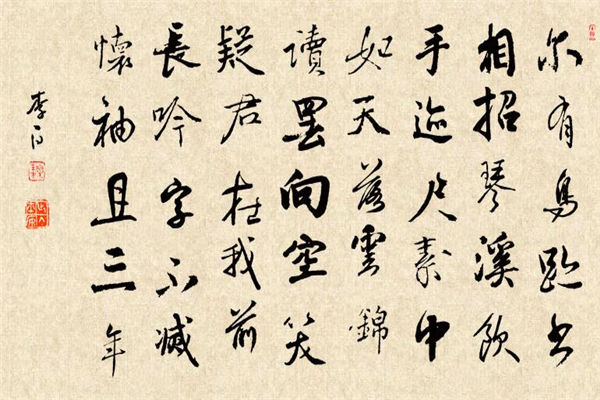 尔有鳥跡書
相招琴溪飲
手迹尺素中
如天落雲錦
讀罷向空笑
疑君在我前
長吟字不滅
懷袖且三年
李白